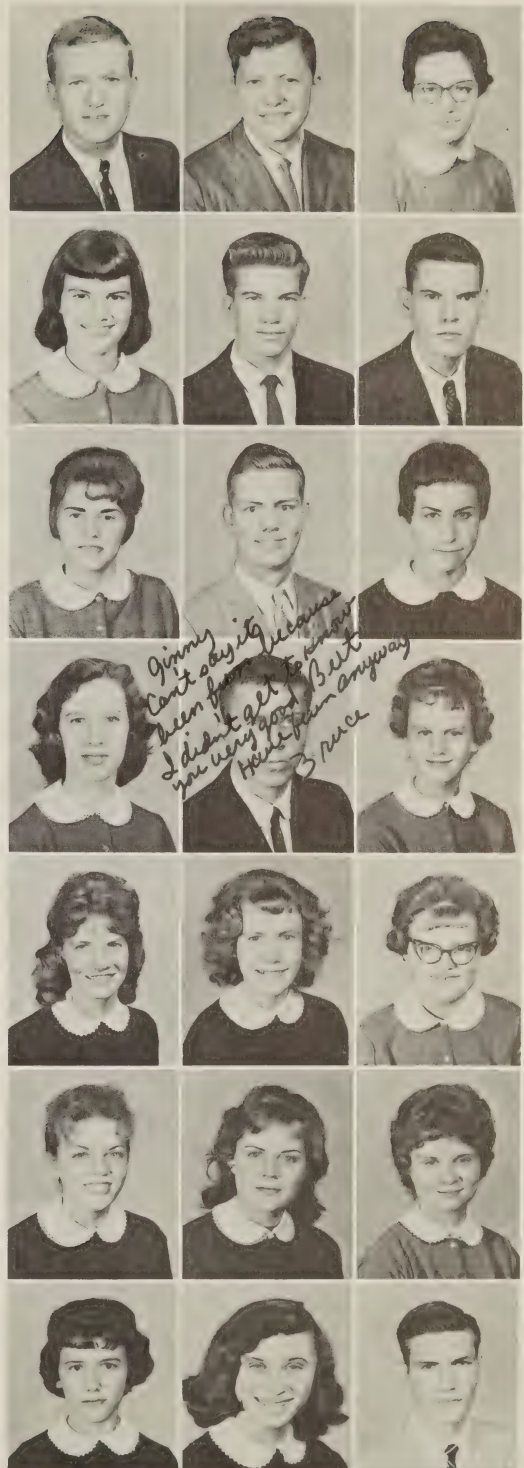 Ginny
Can't say it
been fun because
I didn't get to know
you very good But
Have fun anyway
Bruce